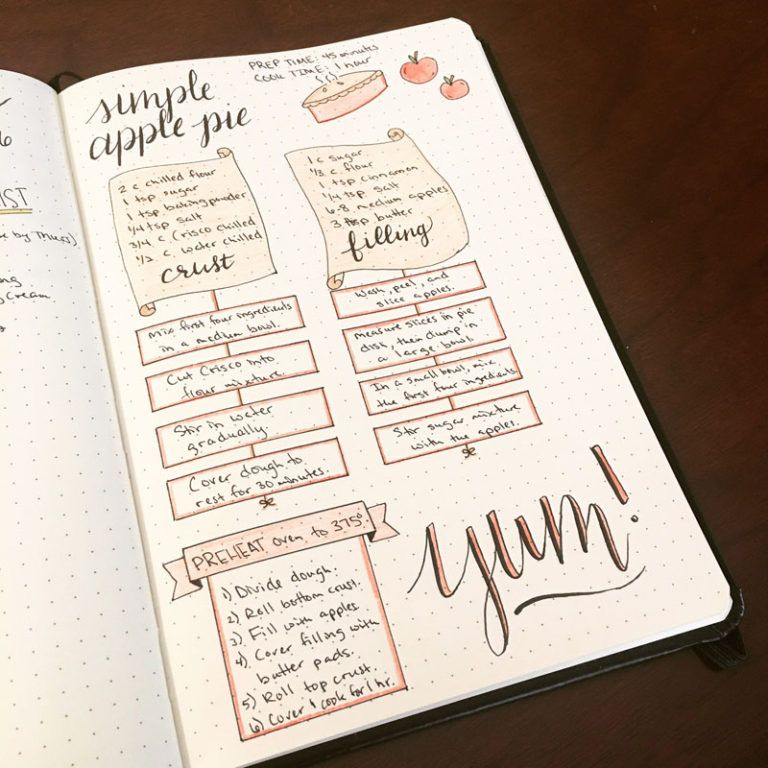 simple
apple pie
PREP TIME: 45 minutes
COOK TIME: 1 hour
2 c chilled flour
1 tsp sugar
1 tsp baking powder
1/4 tsp salt
3/4 c Crisco chilled
1/2 c. water chilled
crust
1 c sugar
1/3 c. flour
1 tsp cinnamon
1/4 tsp salt
6-8 medium apples
3 tsp butter
filling
Mix first four ingredients
in a medium bowl.
Cut Crisco into
flour mixture.
Stir in water
gradually.
Cover dough to
rest for 30 minutes.
Wash, peel, and
slice apples.
Measure slices in pie
dish, then dump in
a large bowl.
In a small bowl, mix
the first four ingredients.
Stir sugar mixture
with the apples.
PREHEAT oven to 375°
1) Divide dough.
2) Roll bottom crust.
3) Fill with apples.
4) Cover filling with
butter pads.
5) Roll top crust.
6) Cover & cook for 1 hr.
yum!
6
IST
by Thurs)
Cream